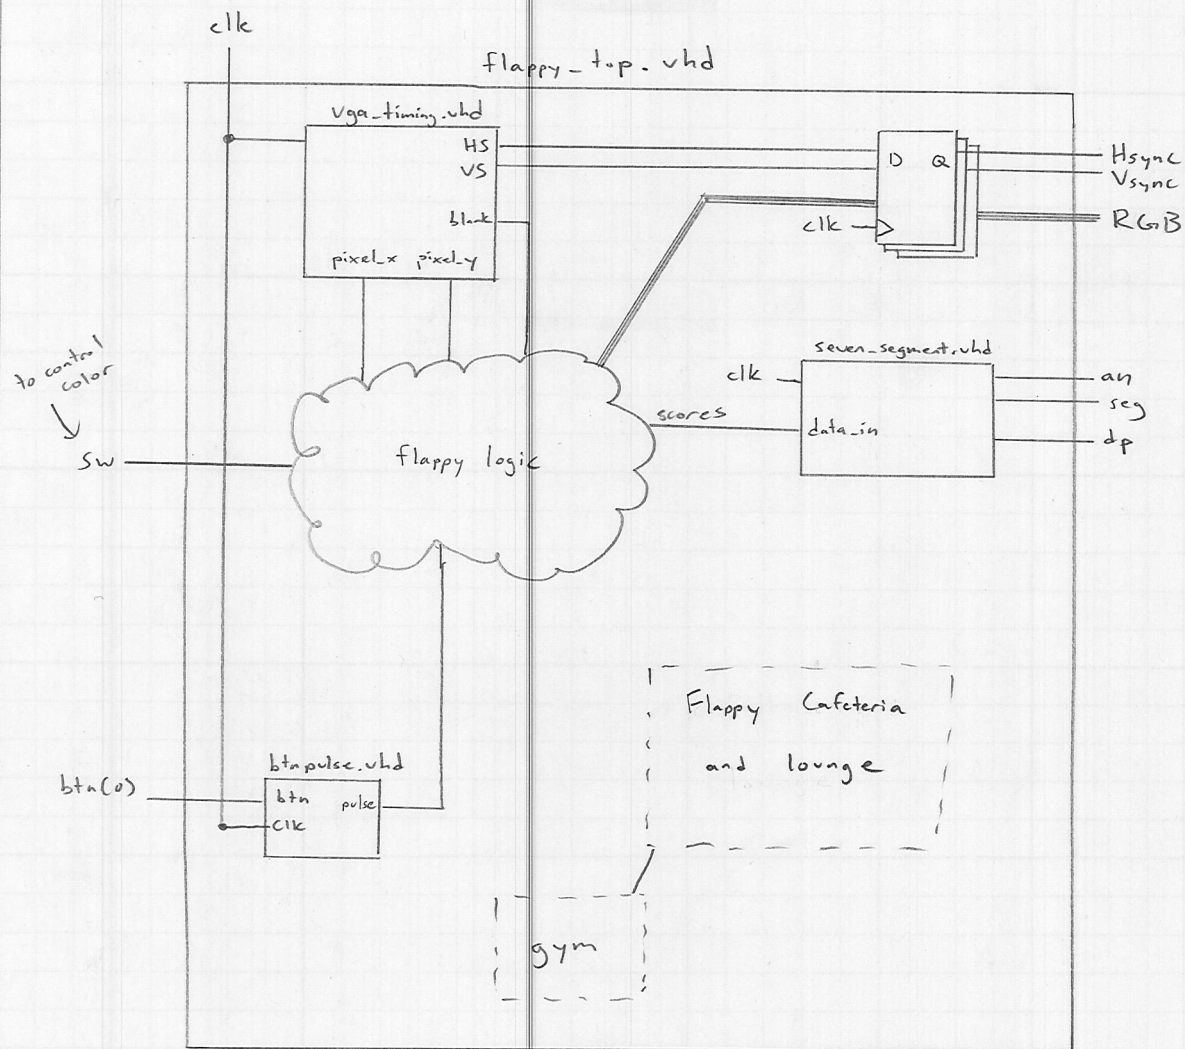 clk
flappy_top.vhd
vga_timing.vhd
HS
VS
blank
pixel_x pixel_y
D Q
clk
Hsync
Vsync
RGB
to control
color
sw
flappy logic
scores
seven_segment.vhd
clk
data_in
an
seg
dp
btn(0)
btnpulse.vhd
btn pulse
clk
Flappy Cafeteria
and lounge
gym